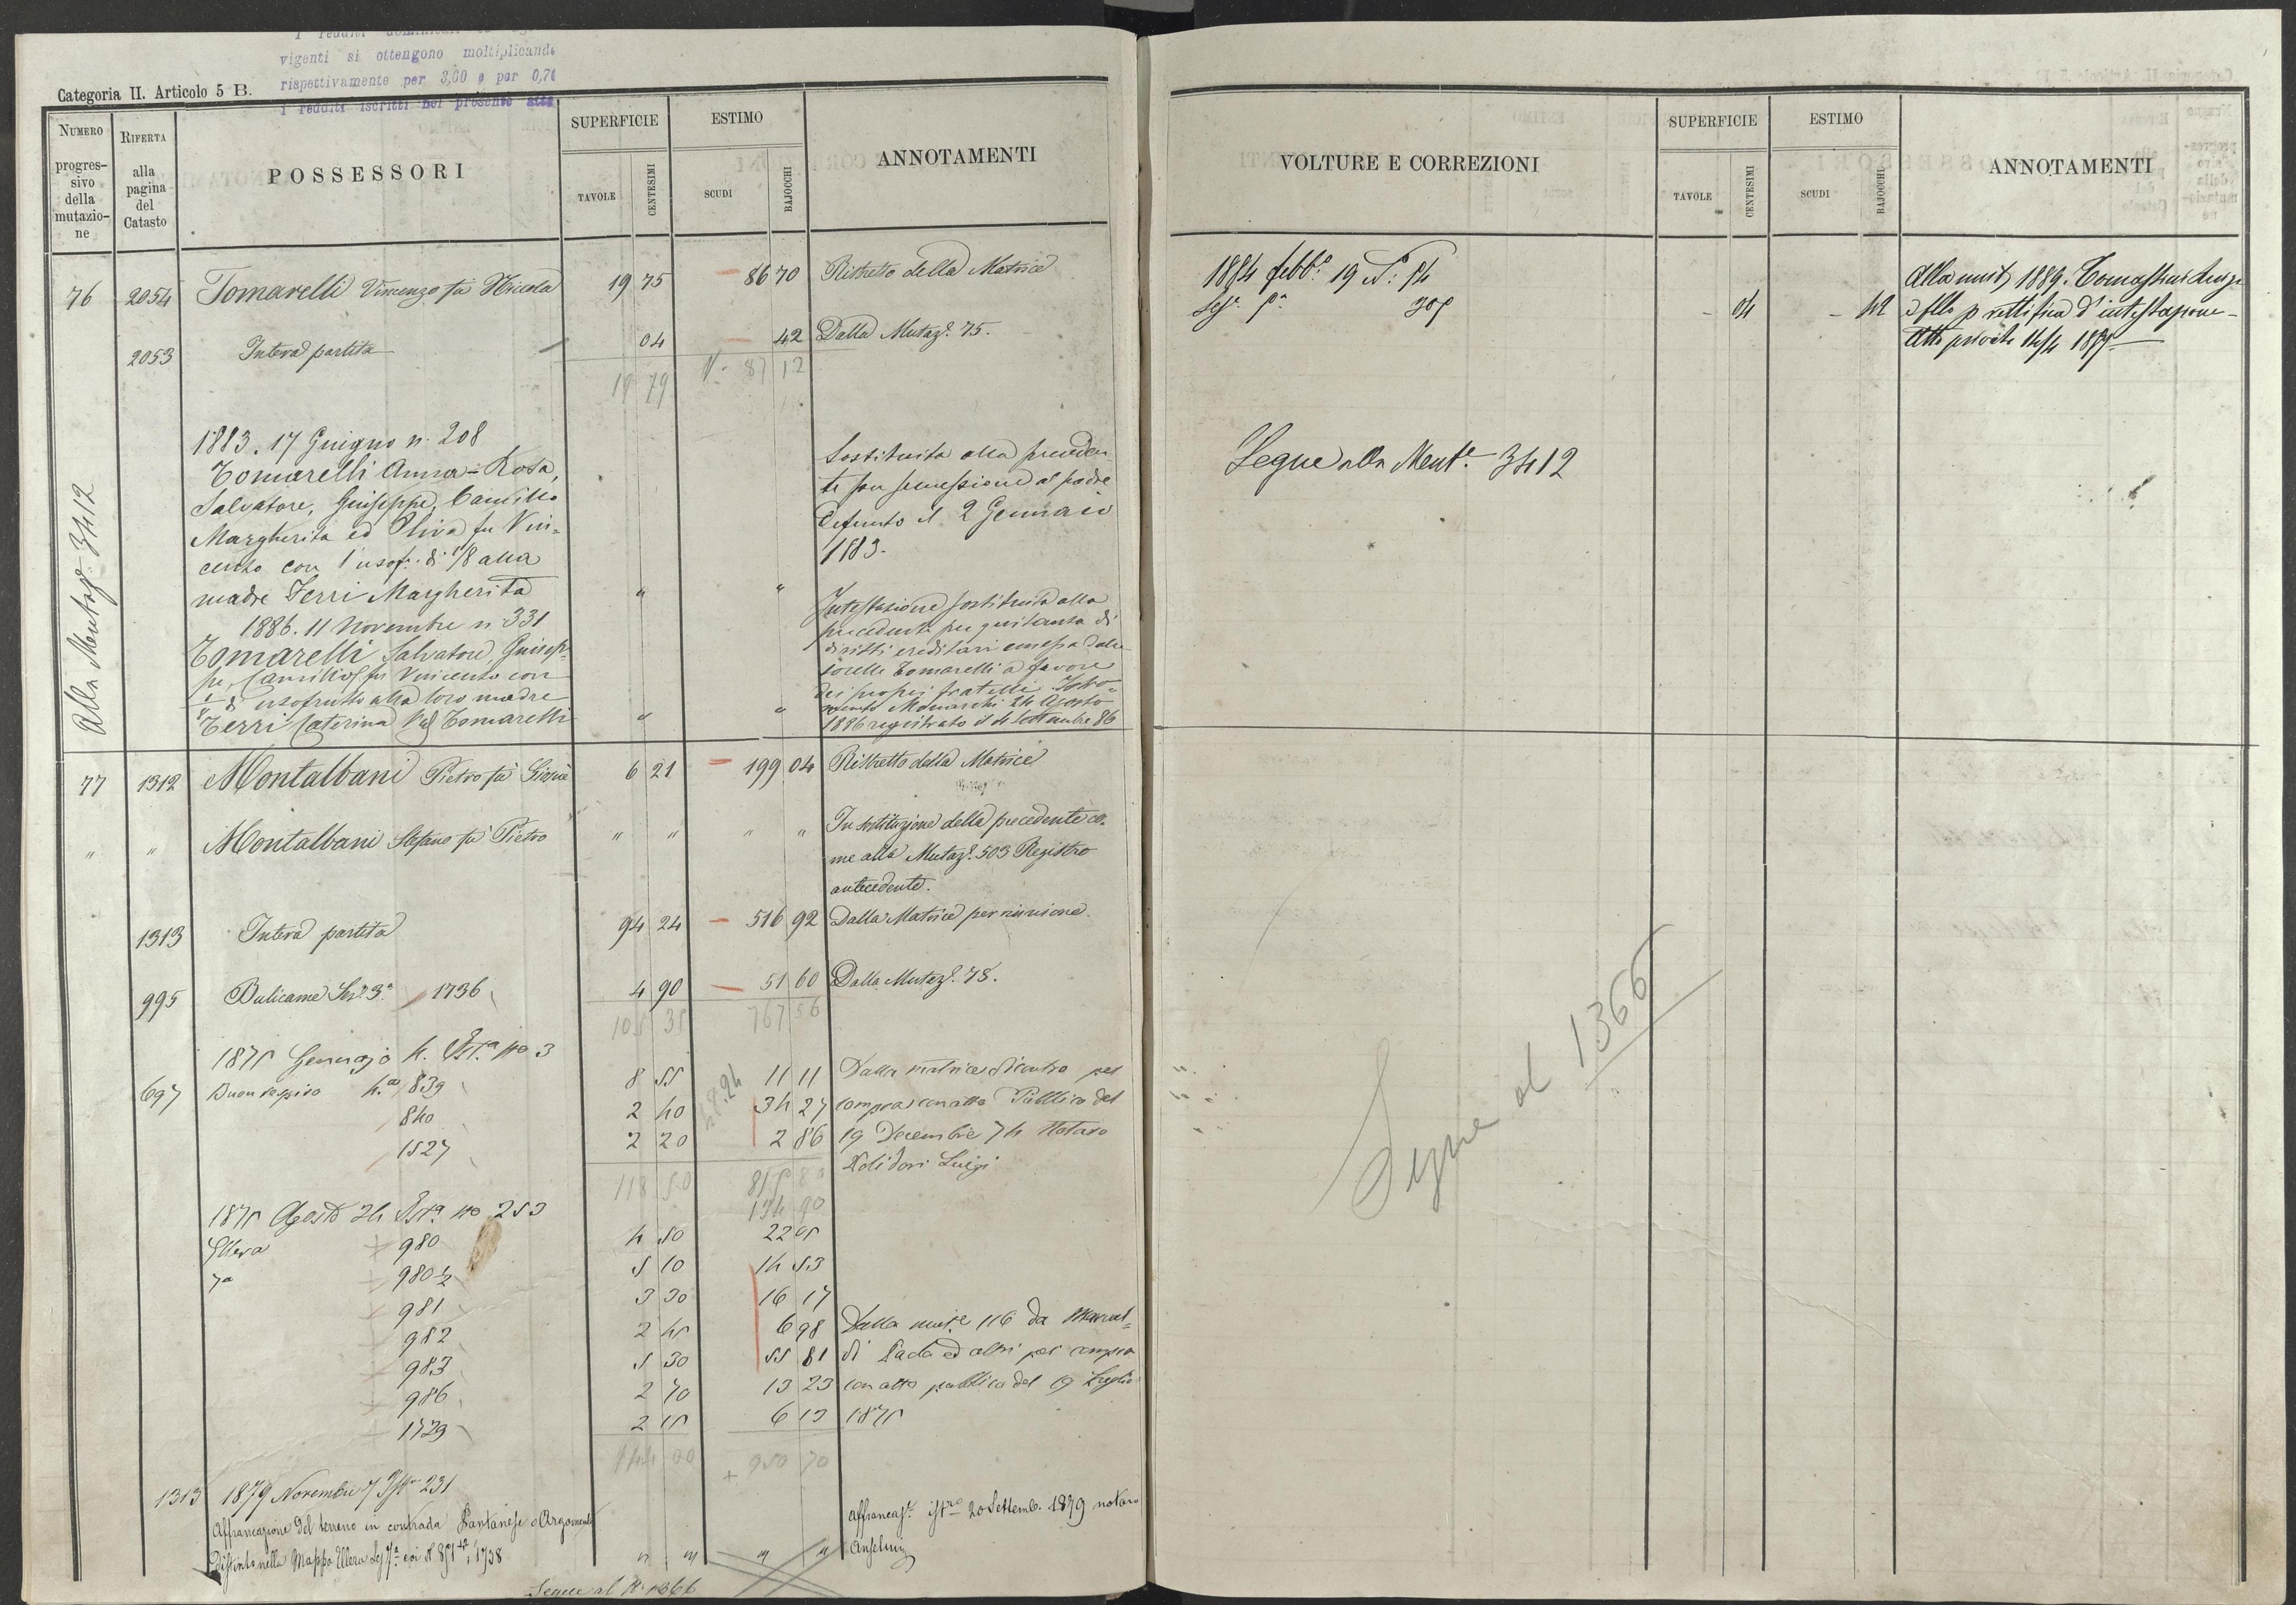 vigenti si ottengono moltiplicando
rispettivamente per 3,60 e per 0,70
i redditi iscritti nel presente atto
Categoria II. Articolo 5 B.
NUMERO
progres-
sivo
della
mutazio-
ne
RIFERTA
alla
pagina
del
Catasto
POSSESSORI
SUPERFICIE
TAVOLE
CENTESIMI
ESTIMO
SCUDI
BAJOCCHI
ANNOTAMENTI
76 2054 Tomarelli Vincenzo fu Nicola 19 75 86 70 Ristretto della Matrice
2053 Intera partita 04 42 Dalla Mutaz.e 75.
19 79 87 12
Alla Mutaz.e 3412
1883. 17 Giugno n. 208
Tomarelli Anna-Rosa,
Salvatore, Giuseppe, Camillo
Margherita ed Oliva fu Vin-
cenzo con l'usof. di 1/8 alla
madre Ferri Margherita " "
Sostituita alla preceden-
te per successione al padre
defunto il 2 Gennaio
1883.
1886. 11 Novembre n 331
Tomarelli Salvatore, Giusep-
pe, Camillo fu Vincenzo con
di usofrutto alla loro madre
Terri Caterina Ved Tomarelli " "
Intestazione sostituita alla
precedente per quitanza di
diritti ereditari emessa dalle
sorelle Tomarelli a favore
dei propri fratelli. Istro-
mento Monarchi 24 Agosto
1886 registrato il 4 Settembre 86
77 1312 Montalbani Pietro fu Giosuè 6 21 199 04 Ristretto della Matrice
" " Montalbani Stefano fu Pietro " " " " In sostituzione della precedente co-
me alla Mutaz.e 503 Registro
antecedente.
1313 Intera partita 94 24 516 92 Dalla Matrice per riunione.
995 Bulicame Sez.e 3.a 1736 4 90 51 60 Dalla Mutaz.e 78.
105 35 767 56
1875 Gennajo 4. no 3
697 Buon respiro 839 8 55 11 11 Dalla matrice di contro per
840 2 40 34 27 compra con atto Pubblico del
1527 2 20 2 86 19 Decembre 74 Notaro
Polidori Luigi
118 50 815 80
134 90
1875 Agosto 24 no 253
Ellera 980 4 50 22 05
7a 980 1/2 5 10 14 53
981 3 30 16 17
982 2 45 6 98 Dalla mut.e 116 da
983 5 30 55 81 di Paola ed altri per compra
986 2 70 13 23 con atto pubblico del 19 Luglio
1729 2 15 6 13 1875
144 00 950 70
1313 1879 Novembre 7 231
Affrancazione del terreno in contrada Pantanese o Argomenti
Distinto nella Mappa Ellera Sez 7a coi N 891 1738 " " " "
Affrancaz.e 20 Settemb. 1879 notaro
Anselmi
Segue al N. 1366
VOLTURE E CORREZIONI
SUPERFICIE
TAVOLE
CENTESIMI
ESTIMO
SCUDI
BAJOCCHI
ANNOTAMENTI
1884 febb.o 19 N: 84
Sez.e 04 42
Alla mut 1889.
p rettifica d'intestazione
Atto privato
Segue alla Mut.e 3412
Segue al 1366